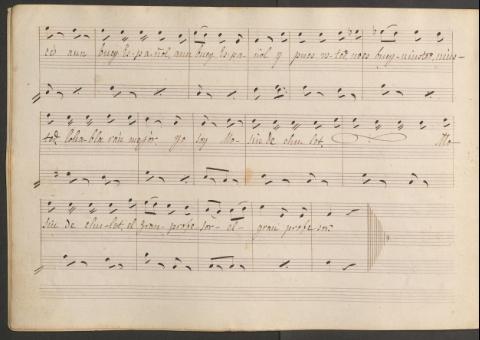 es aun buey Es-pa-ñol, aun buey Es-pa- ñol y pues us-ted, no es buey
lo ha-bla-rán mejor. yo soy Mo- sin de chu-lot. Mo-
sin de chu-lot, el gran profe sor- el- gran profe sor.